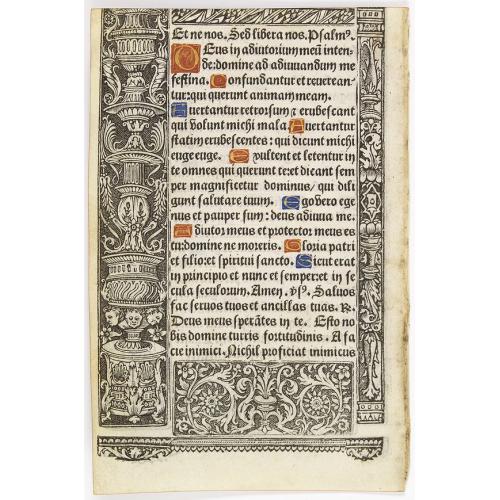 Et ne nos. Sed libera nos. Psalmꝰ.
Deus in adiutorium meū inten-
de: domine ad adiuuandum me
festina. Confundantur et reuerean-
tur: qui querunt animam meam.
Auertantur retrorsum ⁊ erubescant
qui volunt michi mala Auertantur
statim erubescentes: qui dicunt michi
euge euge. Exultent et letentur in
te omnes qui querunt te: et dicant sem
per magnificetur dominus/ qui dili
gunt salutare tuum. Ego vero ege
nus et pauper sum: deus adiuua me.
Adiutor meus et protector meus es
tu: domine ne moreris. Gloria patri
et filio: et spiritui sancto. Sicut erat
in principio et nunc et semper: et in se
cula seculorum. Amen. ꝟsꝰ. Saluos
fac seruos tuos et ancillas tuas. ℞.
Deus meus sperātes in te. Esto no
bis domine turris fortitudinis. A fa
cie inimici. Nichil proficiat inimicus